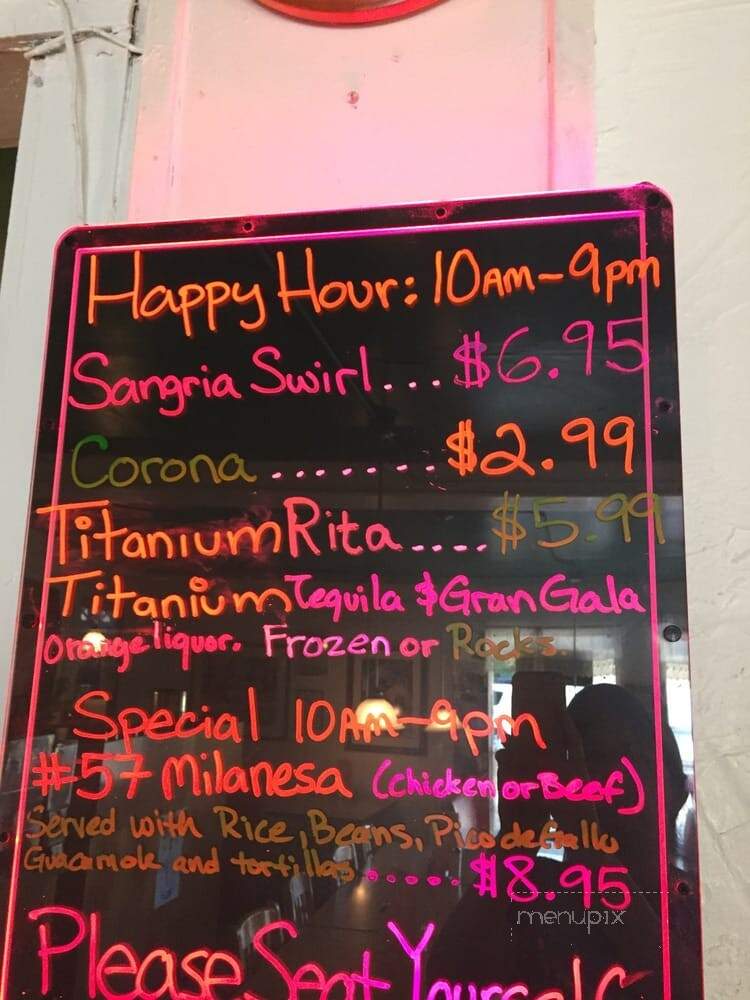 Happy Hour: 10AM-9pm
Sangria Swirl... $6.95
Corona ....... $2.99
Titanium Rita .... $5.99
Titanium Tequila & Gran Gala
Orange liquor. Frozen or Rocks.
Special 10AM-9pm
#57 Milanesa (chicken or Beef)
Served with Rice, Beans, Pico de Gallo
Guacamole and tortillas ..... $8.95
menupix
Please Seat Yourself